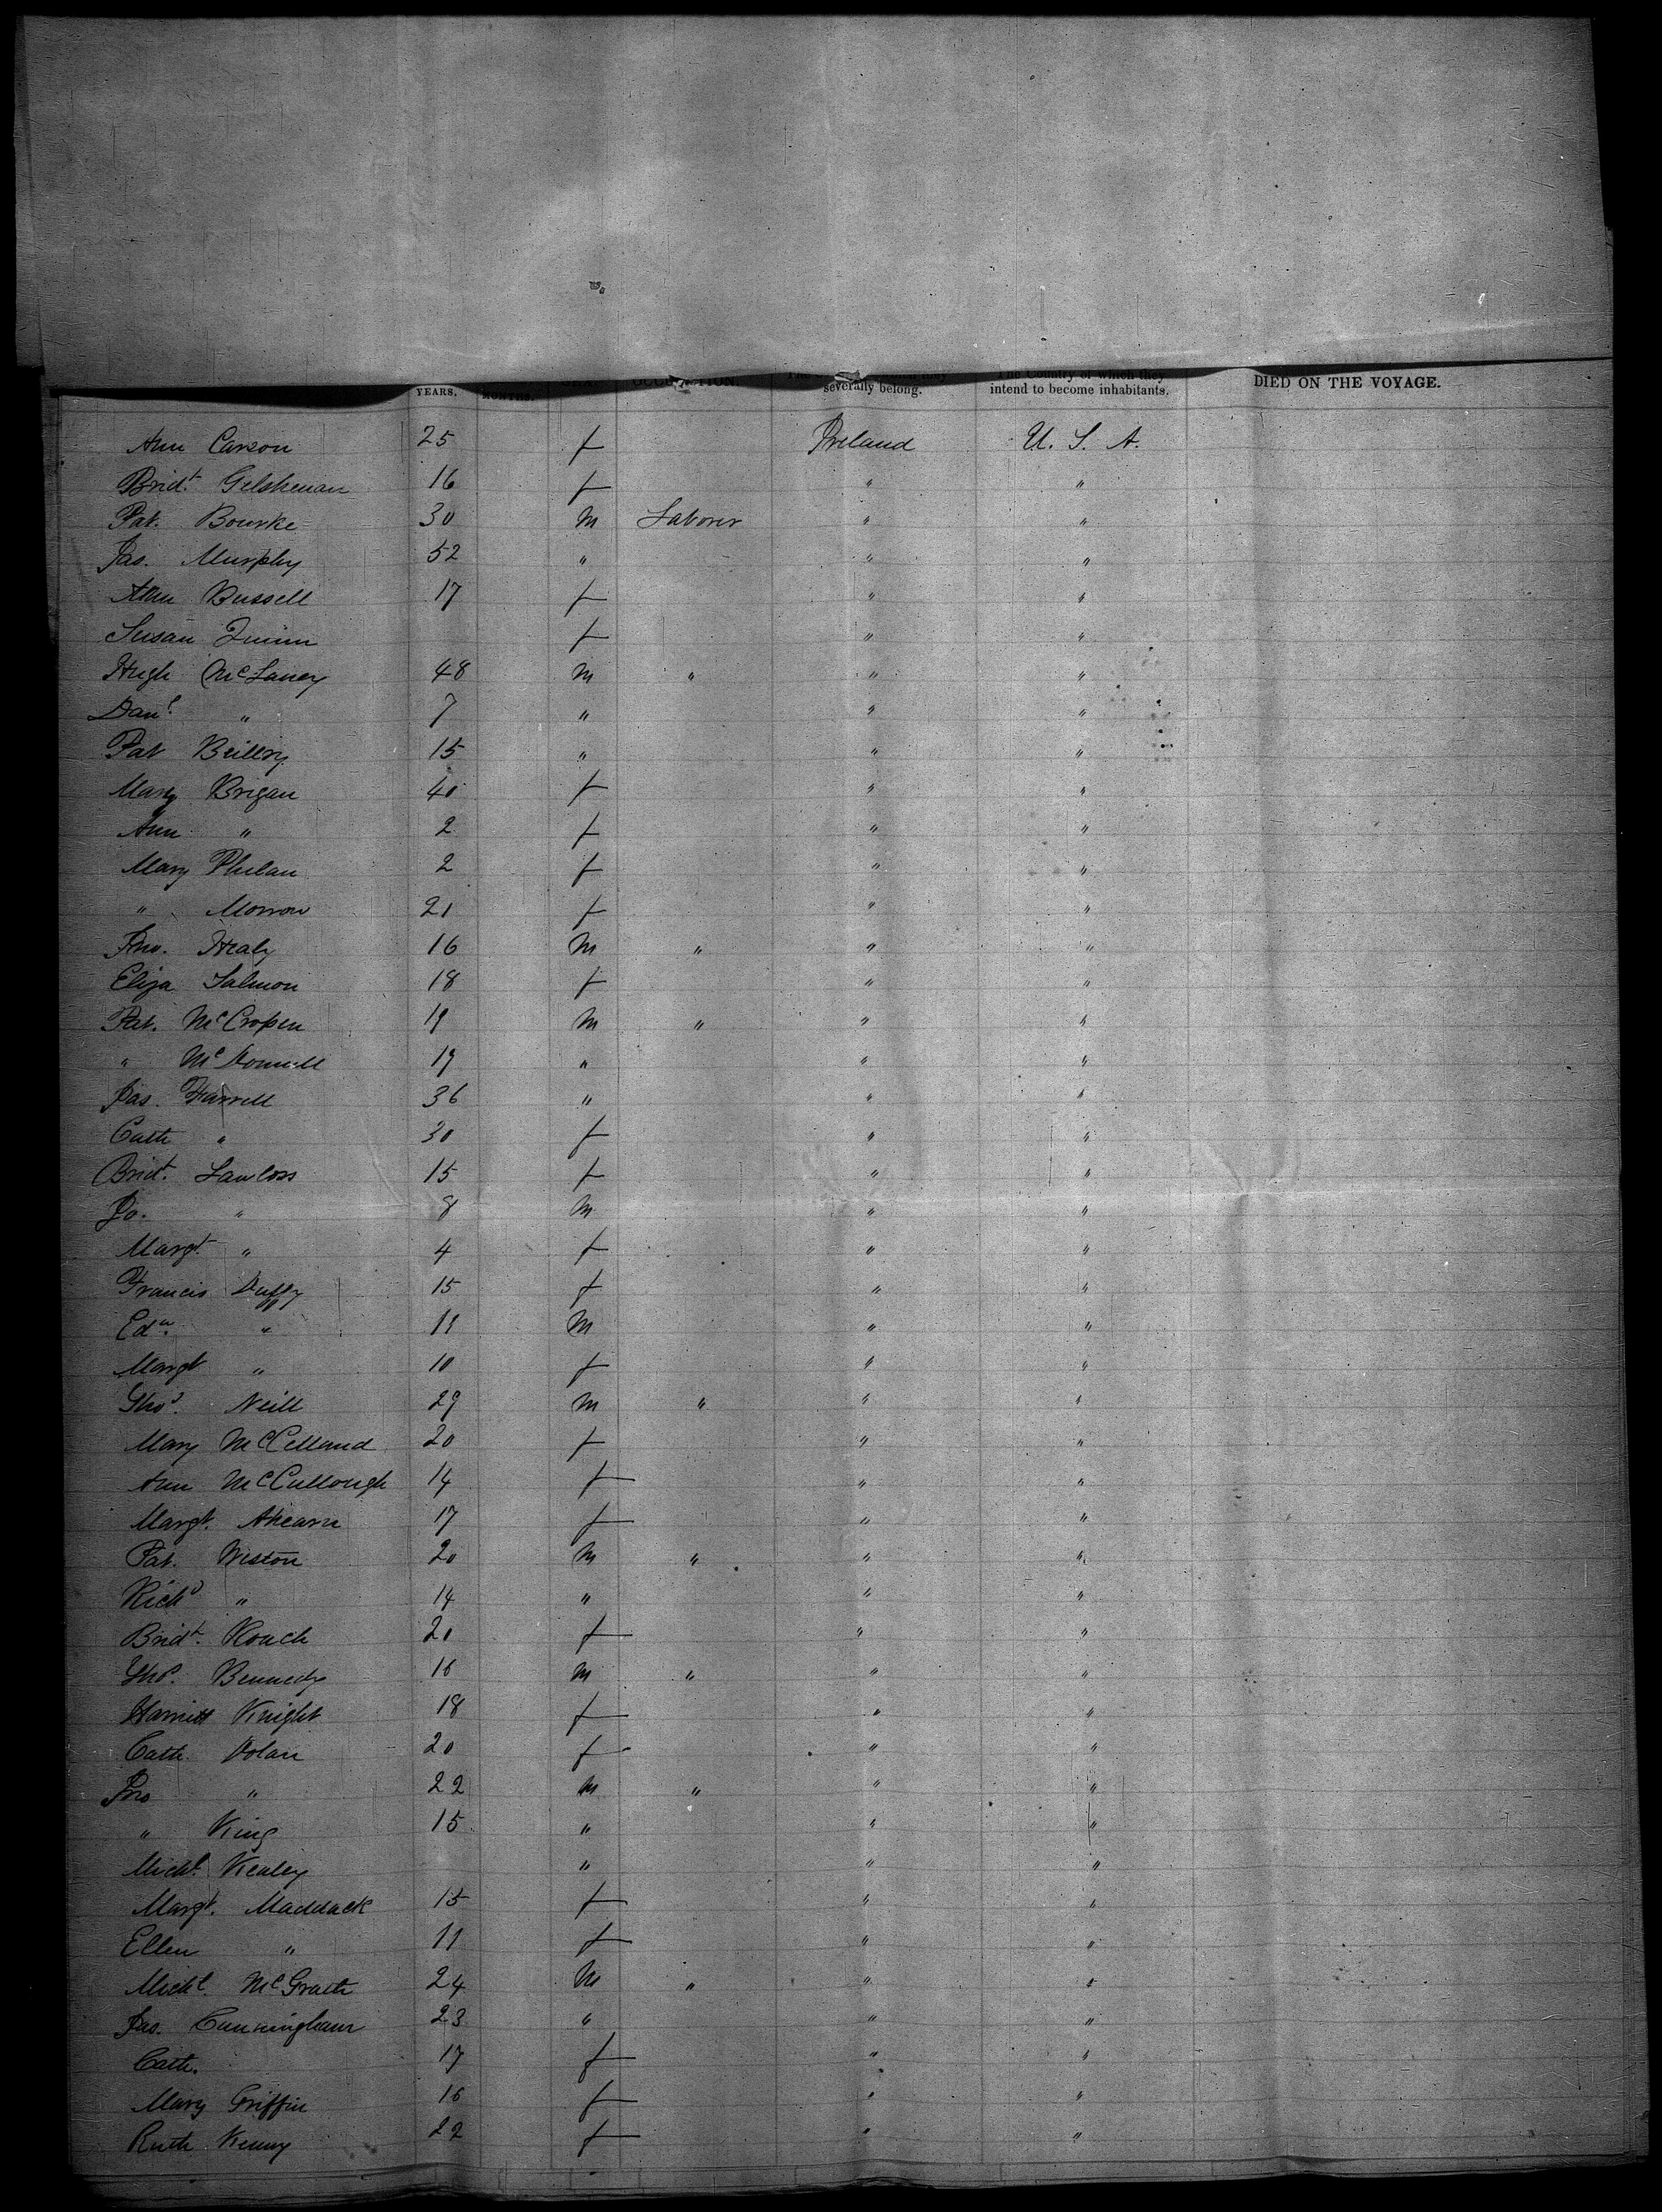 YEARS. MONTHS. OCCUPATION. severally belong. The Country of which they intend to become inhabitants. DIED ON THE VOYAGE.
Ann Carson 25 f Ireland U. S. A.
Bridt. Gelshenan 16 f " "
Pat. Bourke 30 M Laborer " "
Jas. Murphy 52 " " "
Ann Bussell 17 f " "
Susan Quinn f " "
Hugh McLaney 48 M " " "
Danl. " 7 " " "
Pat Beilly 15 " " "
Mary Brigan 40 f " "
Ann " 2 f " "
Mary Phelan 2 f " "
" Morrow 21 f " "
Jno. Healy 16 M " " "
Eliza Salmon 18 f " "
Pat. McCropen 19 M " " "
" McDonnell 19 " " "
Jas. Farrell 36 " " "
Cath " 30 f " "
Bridt. Lawloss 15 f " "
Jo. " 8 M " "
Margt. " 4 f " "
Francis Duffy 15 f " "
Edw. " 11 M " "
Margt " 10 f " "
Thos. Neill 29 M " " "
Mary McClelland 20 f " "
Ann McCullough 14 f " "
Margt. Ahearn 17 f " "
Pat. Weston 20 M " " "
Richd " 14 " " "
Bridt. Roach 20 f " "
Thos. Bennedy 16 M " " "
Harriett Knight 18 f " "
Cath. Dolan 20 f " "
Jno " 22 M " " "
" King 15 " " "
Michl. Kealey " " "
Margt. Maddack 15 f " "
Ellen " 11 f " "
Michl. McGrath 24 M " " "
Jas. Cunningham 23 " " "
Cath. 17 f " "
Mary Griffin 16 f " "
Ruth Kenny 22 f " "